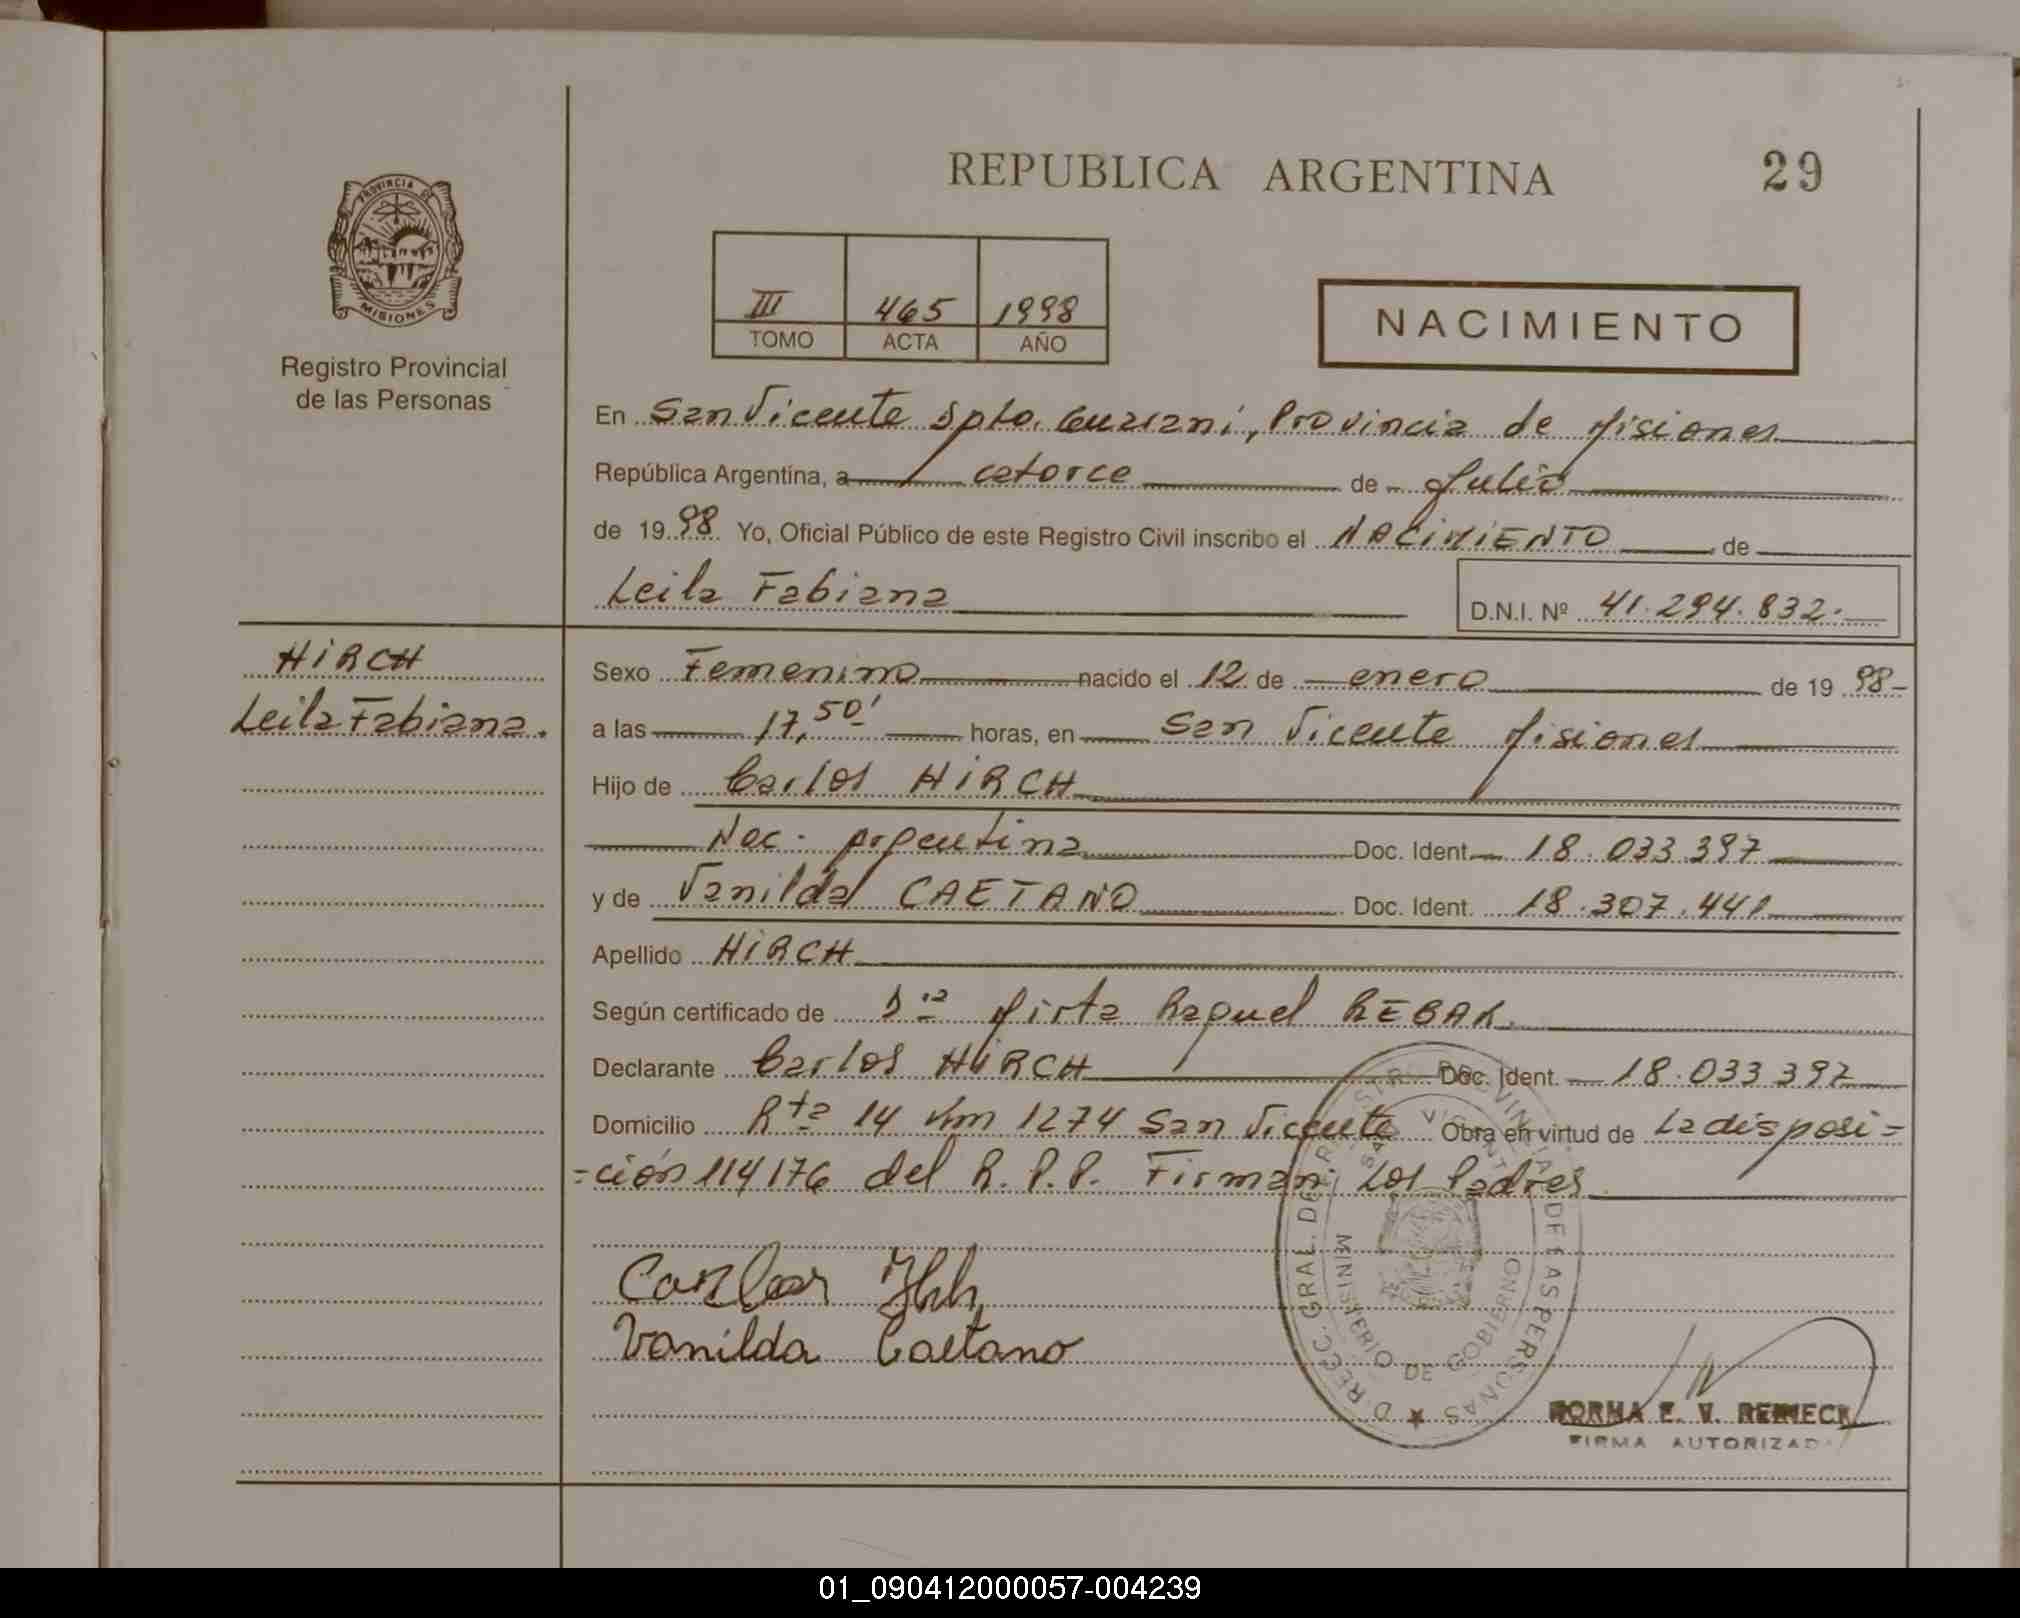 REPUBLICA ARGENTINA
29
PROVINCIA DE
MISIONES
Registro Provincial
de las Personas
III 465 1998
TOMO ACTA AÑO
NACIMIENTO
En San Vicente Dpto. Guaraní, Provincia de Misiones
República Argentina, a catorce de Julio
de 19 98 Yo, Oficial Público de este Registro Civil inscribo el NACIMIENTO de
Leila Fabiana
D.N.I. Nº 41.294.832.
HIRCH
Leila Fabiana.
Sexo Femenino nacido el 12 de enero de 19 98
a las 17,50' horas, en San Vicente Misiones
Hijo de Carlos HIRCH
Nac. Argentina Doc. Ident. 18.033.397
y de Vanilda CAETANO Doc. Ident. 18.307.441
Apellido HIRCH
Según certificado de Dra Mirta Raquel REBAK.
Declarante Carlos HIRCH Doc. Ident. 18.033.397
Domicilio Rta 14 Km 1274 San Vicente Obra en virtud de La disposi=
=ción 114176 del R.P.P. Firman: Los Padres
Carlos
Vanilda Caetano
DIRECC. GRAL. DE REGISTRO PROVINCIAL DE LAS PERSONAS
SAN VICENTE
MINISTERIO DE GOBIERNO
NORMA E. V. REINECK
FIRMA AUTORIZADA
01_090412000057-004239